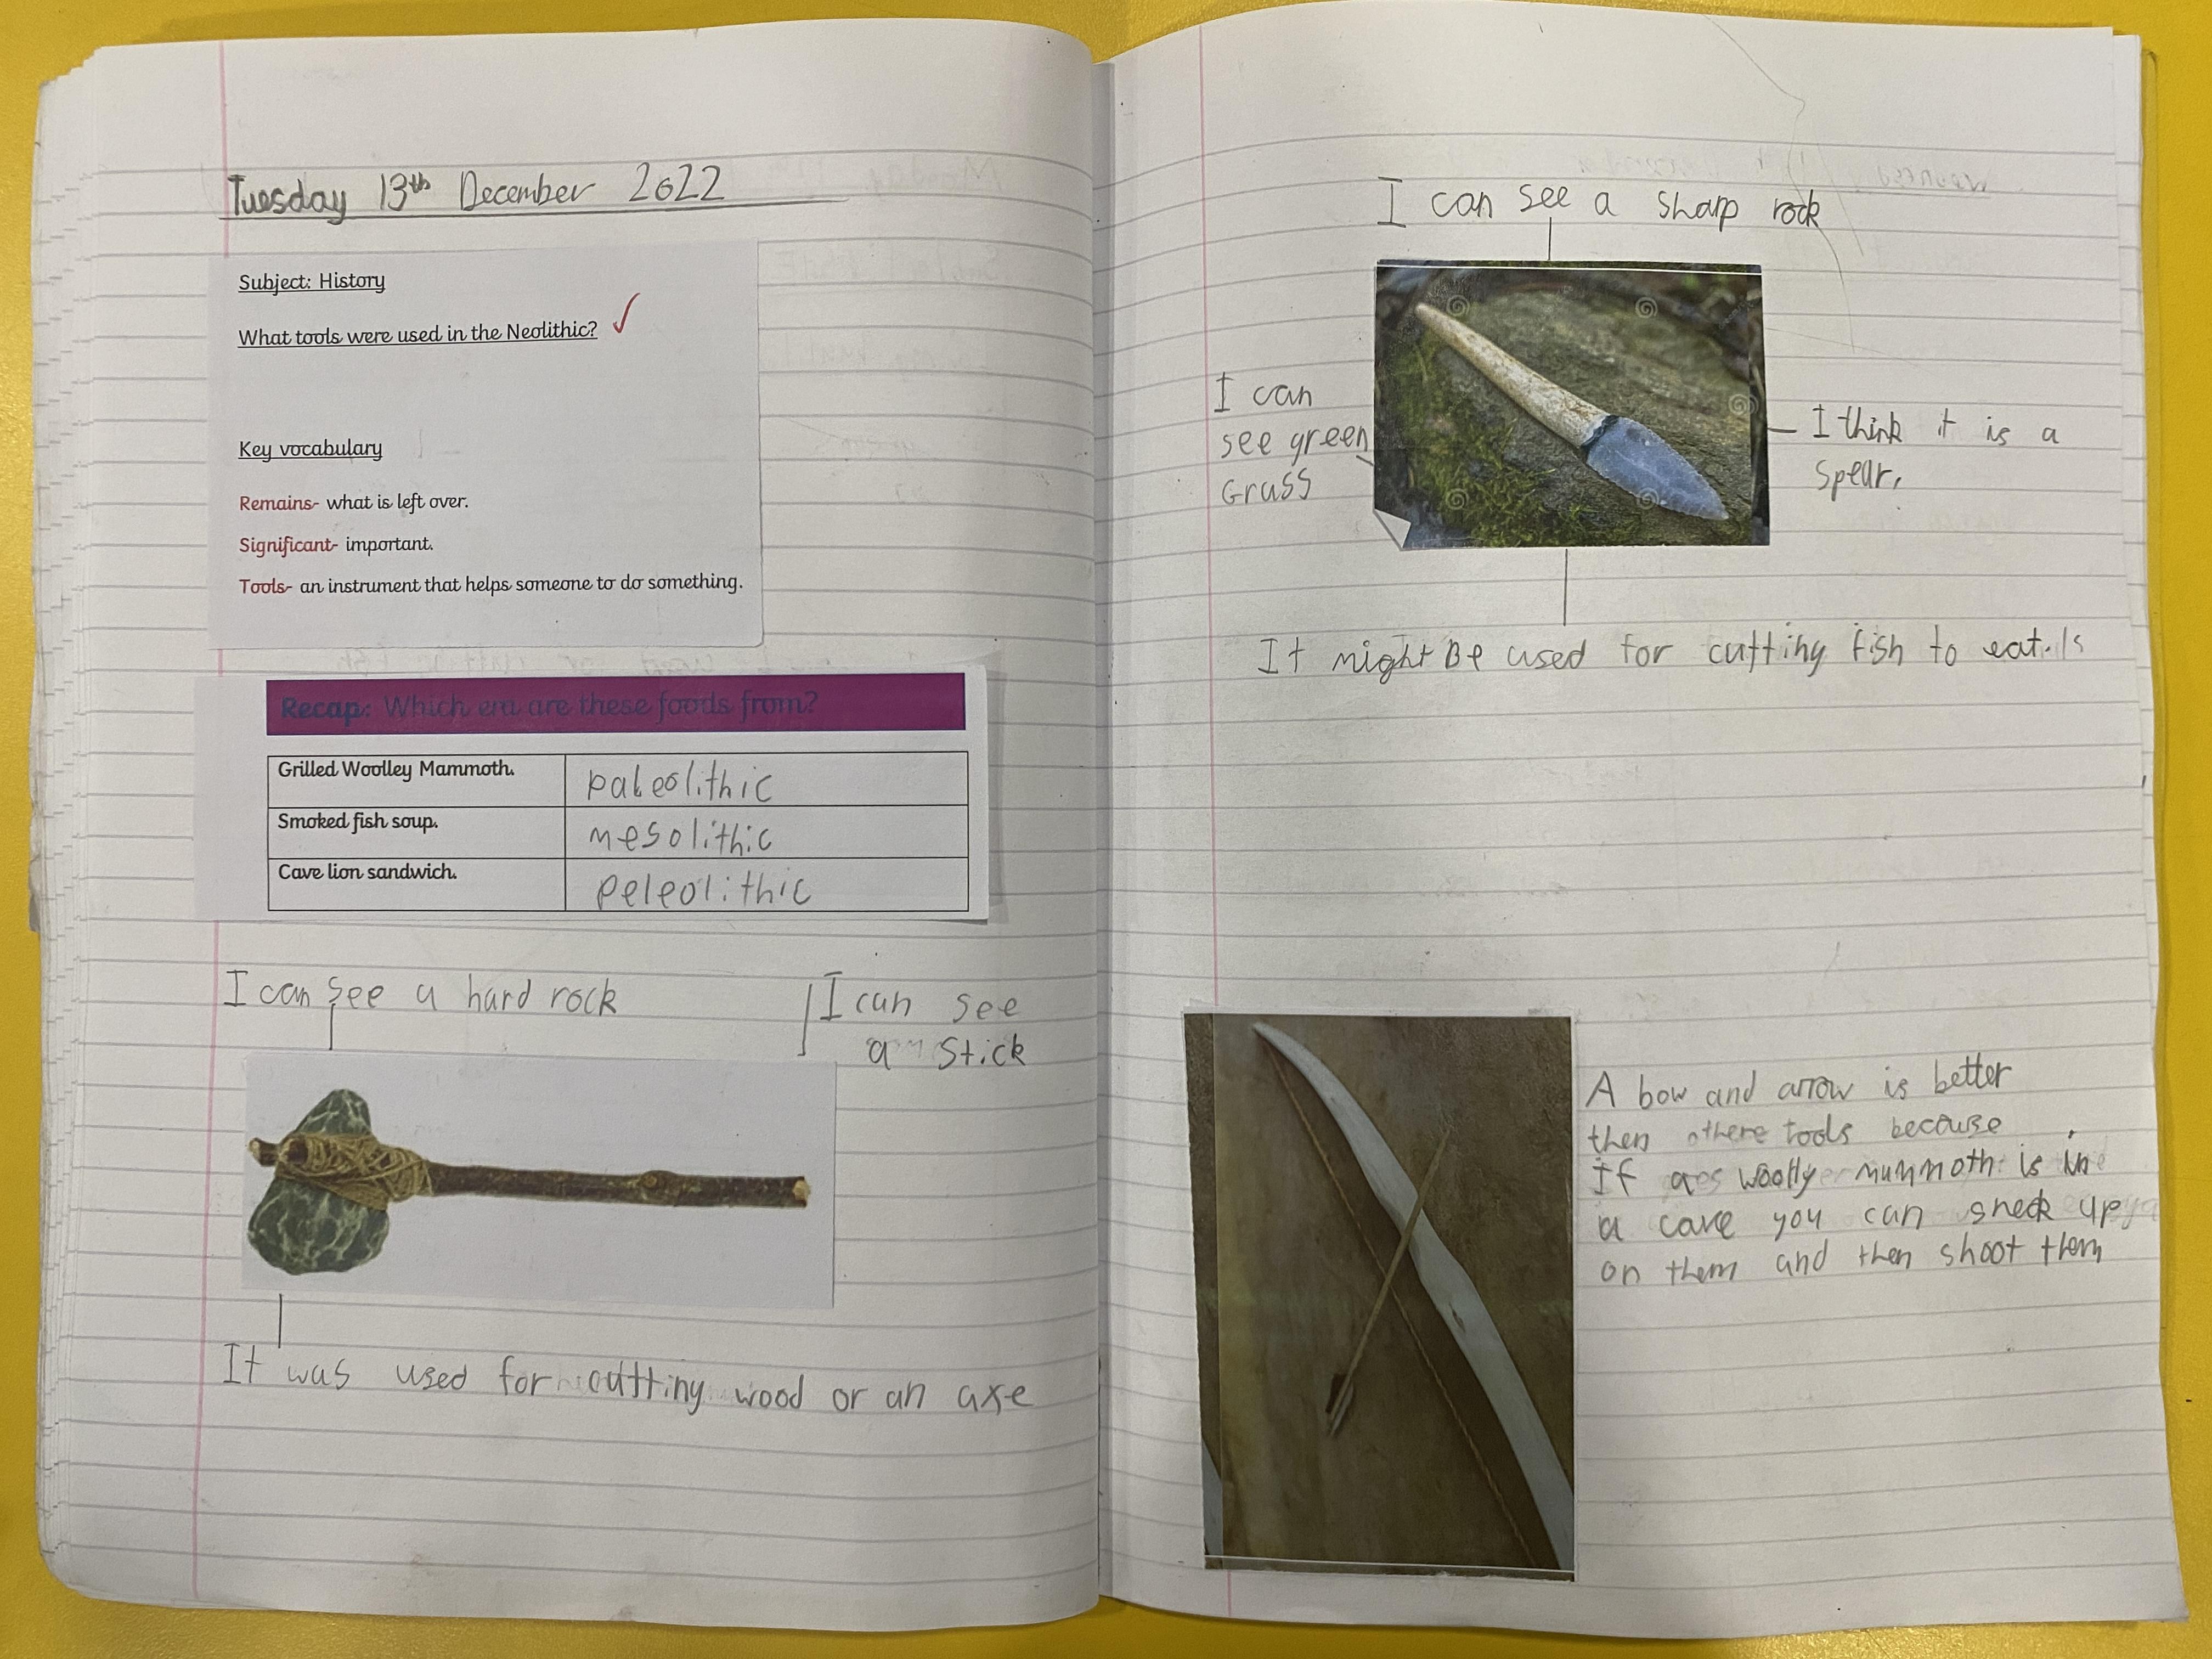 Tuesday 13th December 2022
Subject: History
What tools were used in the Neolithic?
Key vocabulary
Remains- what is left over.
Significant- important.
Tools- an instrument that helps someone to do something.
Recap: Which era are these foods from?
Grilled Woolley Mammoth. paleolithic
Smoked fish soup. mesolithic
Cave lion sandwich. peleolithic
I can see a hard rock
I can see
a stick
It was used for cutting wood or an axe
I can see a sharp rock
I can
see green
Grass
I think it is a
spear.
It might Be used for cutting fish to eat.
A bow and arrow is better
then othere tools because
If a woolly mummoth is in
a cave you can sneck up
on them and then shoot them